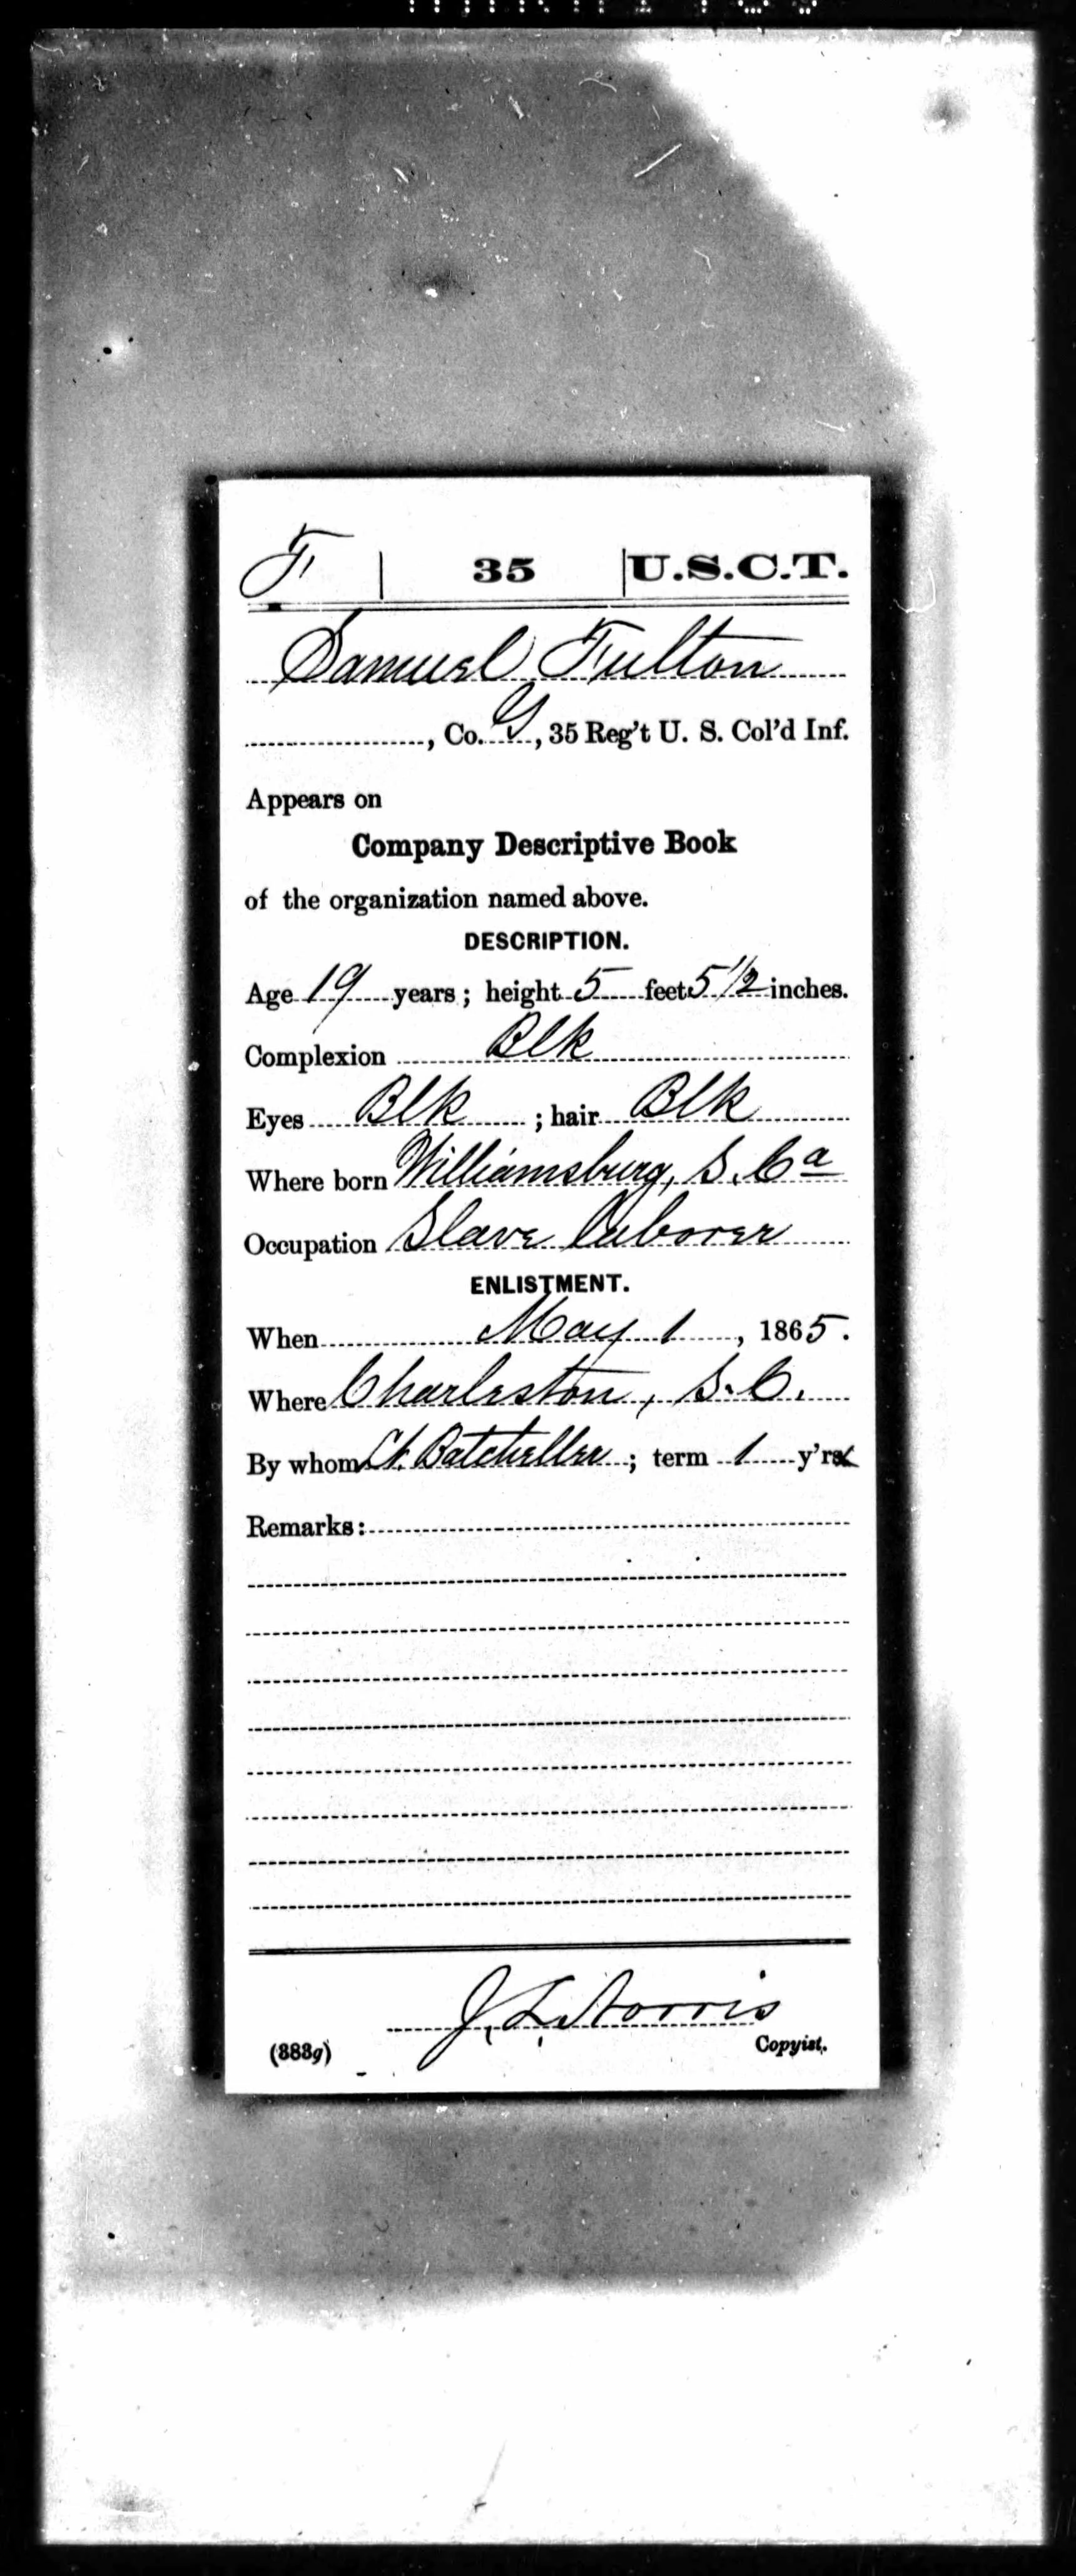 F | 35 | U.S.C.T.
Samuel Fulton
, Co. G, 35 Reg't U. S. Col'd Inf.
Appears on
Company Descriptive Book
of the organization named above.
DESCRIPTION.
Age 19 years; height 5 feet 5 1/2 inches.
Complexion Blk
Eyes Blk ; hair Blk
Where born Williamsburg, S. Ca
Occupation Slave laborer
ENLISTMENT.
When May 1, 1865.
Where Charleston, S.C.
By whom Lt. Batcheller; term 1 y'rs
Remarks:
J. L. Norris
(383g) Copyist.